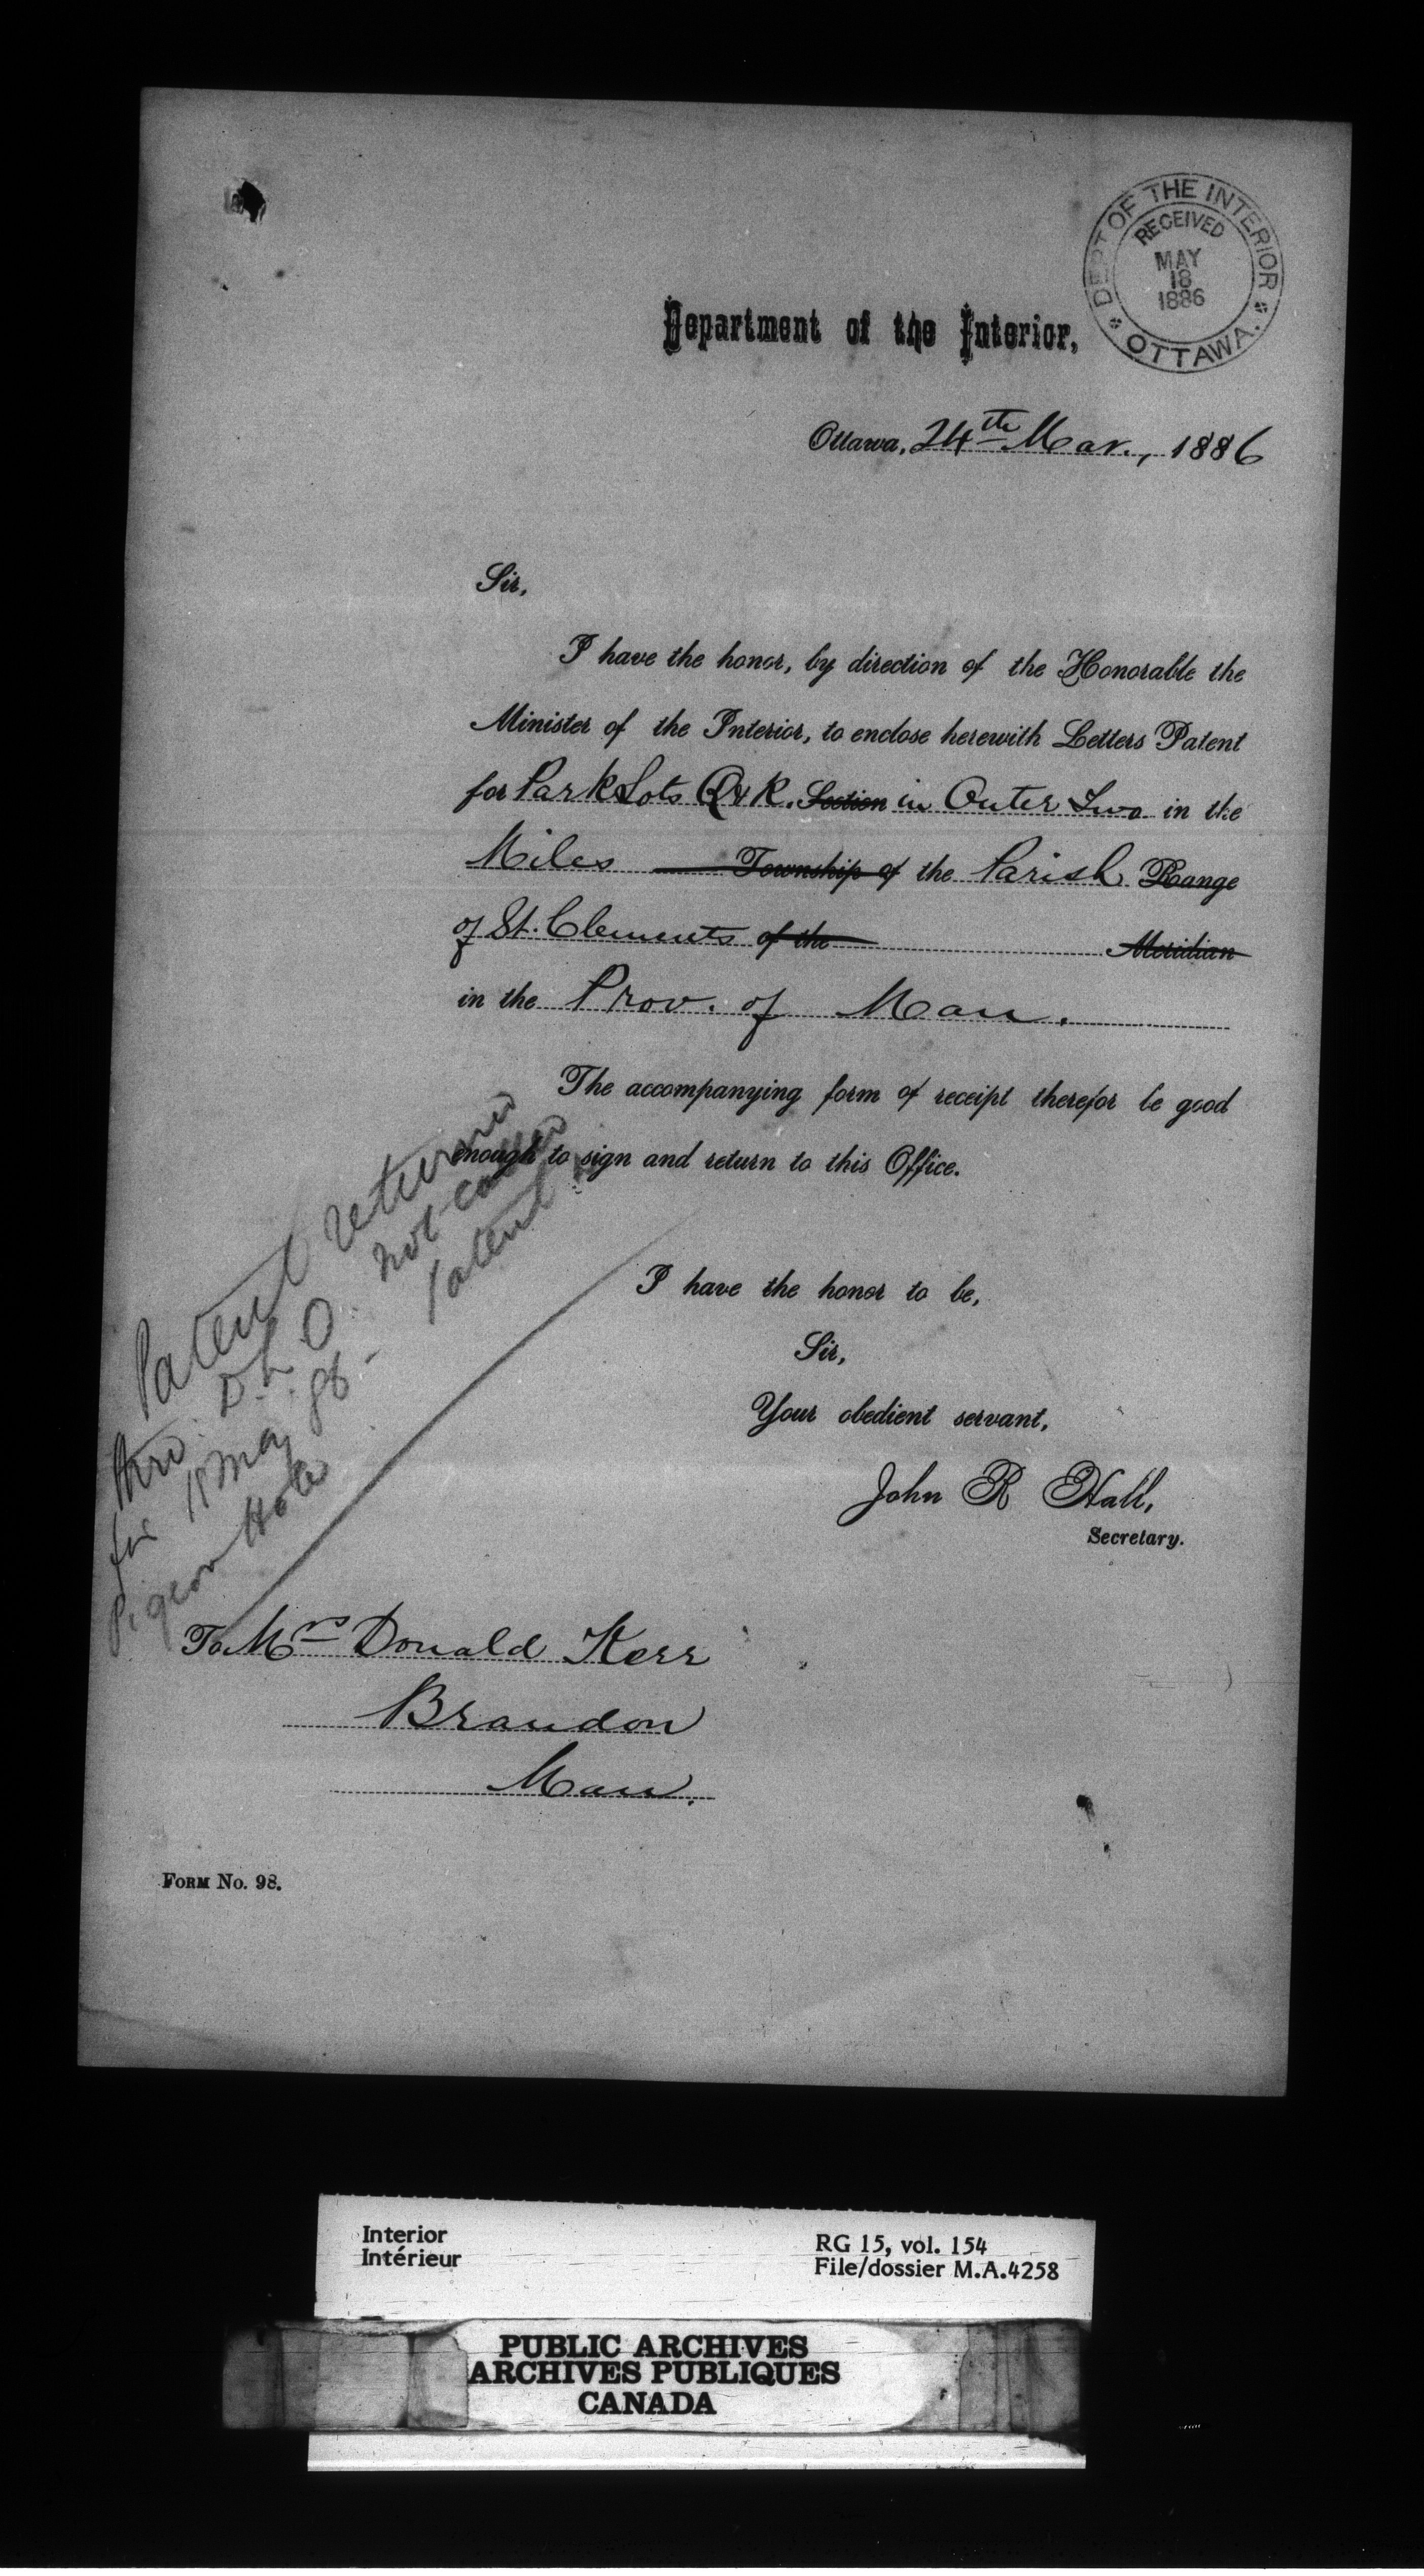 DEPT OF THE INTERIOR
RECEIVED
MAY
18
1886
OTTAWA.
Department of the Interior,
Ottawa, 24th Mar., 1886
Sir,
I have the honor, by direction of the Honorable the
Minister of the Interior, to enclose herewith Letters Patent
for Park Lots Q & R. Section in Outer Two in the
Miles Township of the Parish Range
of St. Clements of the Meridian
in the Prov. of Man.
The accompanying form of receipt therefor be good
enough to sign and return to this Office.
Patent returned
D.L.O. not called
for 11 May 86 - Patent in
Pigeon Hole
I have the honor to be,
Sir,
Your obedient servant,
John R Hall,
Secretary.
To Mrs Donald Kerr
Brandon
Man.
FORM No. 98.
Interior
Intérieur
RG 15, vol. 154
File/dossier M.A.4258
PUBLIC ARCHIVES
ARCHIVES PUBLIQUES
CANADA